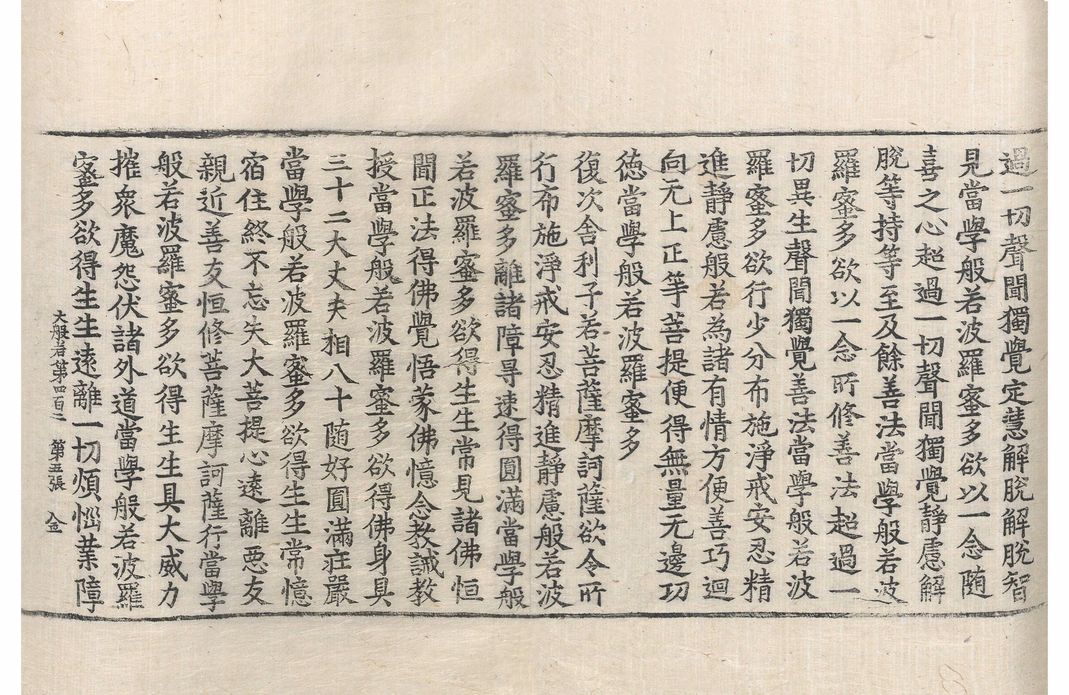 過一切聲聞獨覺定慧解脫解脫智
見當學般若波羅蜜多欲以一念随
喜之心超過一切聲聞獨覺靜慮解
脫等持等至及餘善法當學般若波
羅蜜多欲以一念所修善法超過一
切異生聲聞獨覺善法當學般若波
羅蜜多欲行少分布施淨戒安忍精
進靜慮般若為諸有情方便善巧迴
向无上正等菩提便得無量无邊功
德當學般若波羅蜜多
復次舍利子若菩薩摩訶薩欲令所
行布施淨戒安忍精進靜慮般若波
羅蜜多離諸障㝵速得圓滿當學般
若波羅蜜多欲得生生常見諸佛恒
聞正法得佛覺悟蒙佛憶念教誡教
授當學般若波羅蜜多欲得佛身具
三十二大丈夫相八十随好圓滿莊嚴
當學般若波羅蜜多欲得生生常憶
宿住終不忘失大菩提心遠離惡友
親近善友恒修菩薩摩訶薩行當學
般若波羅蜜多欲得生生具大威力
摧衆魔怨伏諸外道當學般若波羅
蜜多欲得生生遠離一切煩惱業障
大般若第四百二 第五張 金